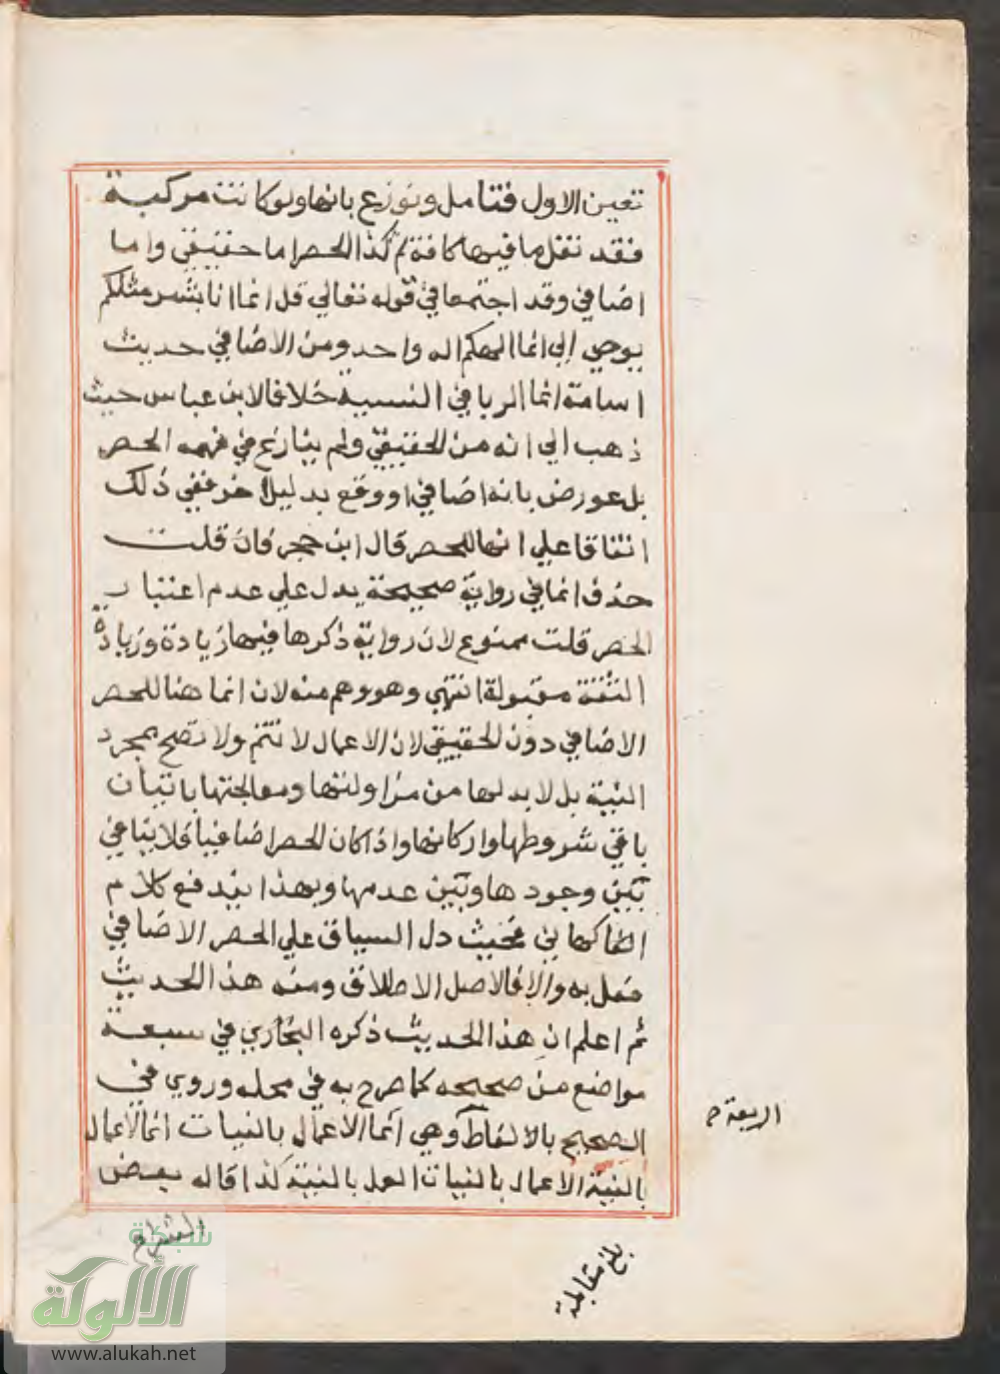 تعين الاول فتامل ونوزع بانها ولو كانت مركبة
فقد نقل ما فيها كافة ثم كذا الحصر اما حقيقي واما
اضافي وقد اجتمعا في قوله تعالي قل انما انا بشر مثلكم
يوحي الي انما الهكم اله واحد ومن الاضافي حديث
اسامة انما الربا في النسيه خلافا لابن عباس حيث
ذهب الي انه من الحقيقي ولم ينازع في فهمه الحصر
بل عورض بانه اضافي او وقع بدليل اخر ففي ذلك
اتفاقا علي انها للحصر قال ابن حجر فان قلت
حذف انما في رواية صحيحة يدل علي عدم اعتبار
الحصر قلت ممنوع لان رواية ذكرها فيها زيادة وزيادة
الثقة مقبولة انتهي وهو وهم منه لان انما هنا للحصر
الاضافي دون الحقيقي لان الاعمال لا تتم ولا تصح بمجرد
النية بل لا بد لها من مزاولتها ومعالجتها باتيان
باقي شروطها واركانها واذا كان الحصر اضافيا فلا ينافي
بين وجودها وبين عدمها وبهذا يندفع كلام
الفاكهاني فحيث دل السياق علي الحصر الاضافي
عمل به والا فالاصل الاطلاق ومنه هذا الحديث
ثم اعلم ان هذا الحديث ذكره البخاري في سبعة
مواضع من صحيحه كما صرح به في محله وروي في
الصحيح بالالفاظ وهي انما الاعمال بالنيات انما الاعمال
بالنية الاعمال بالنيات العمل بالنية كذا قاله بعض
الاربعة صح
الشراح
بلغ مقابلة
شبكة
الألوكة
www.alukah.net